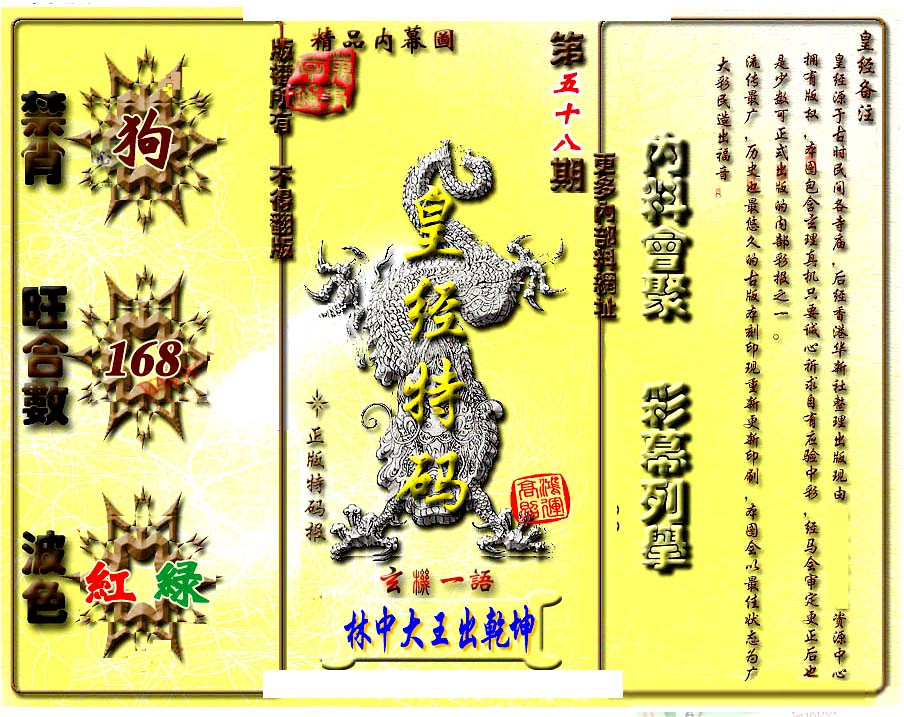 禁肖
狗
旺合數
168
波色
紅 綠
版權所有 不得翻版
精品内幕圖
第五十八期
皇经特码
正版特码报
鴻運高照
玄機一語
林中大王出乾坤
更多內部料網址
内料會聚 彩幕列舉
皇经备注
皇经源于古时民间各寺庙，后经香港华新社整理出版现由 资源中心
拥有版权，本图包含玄理真机只要诚心祈求自有应验中彩，经马会审定更正后也
是少数可正式出版的内部彩报之一。
流传最广，历史也最悠久的古版本刻印现重新更新印刷，本图会以最佳状态为广
大彩民造出福音